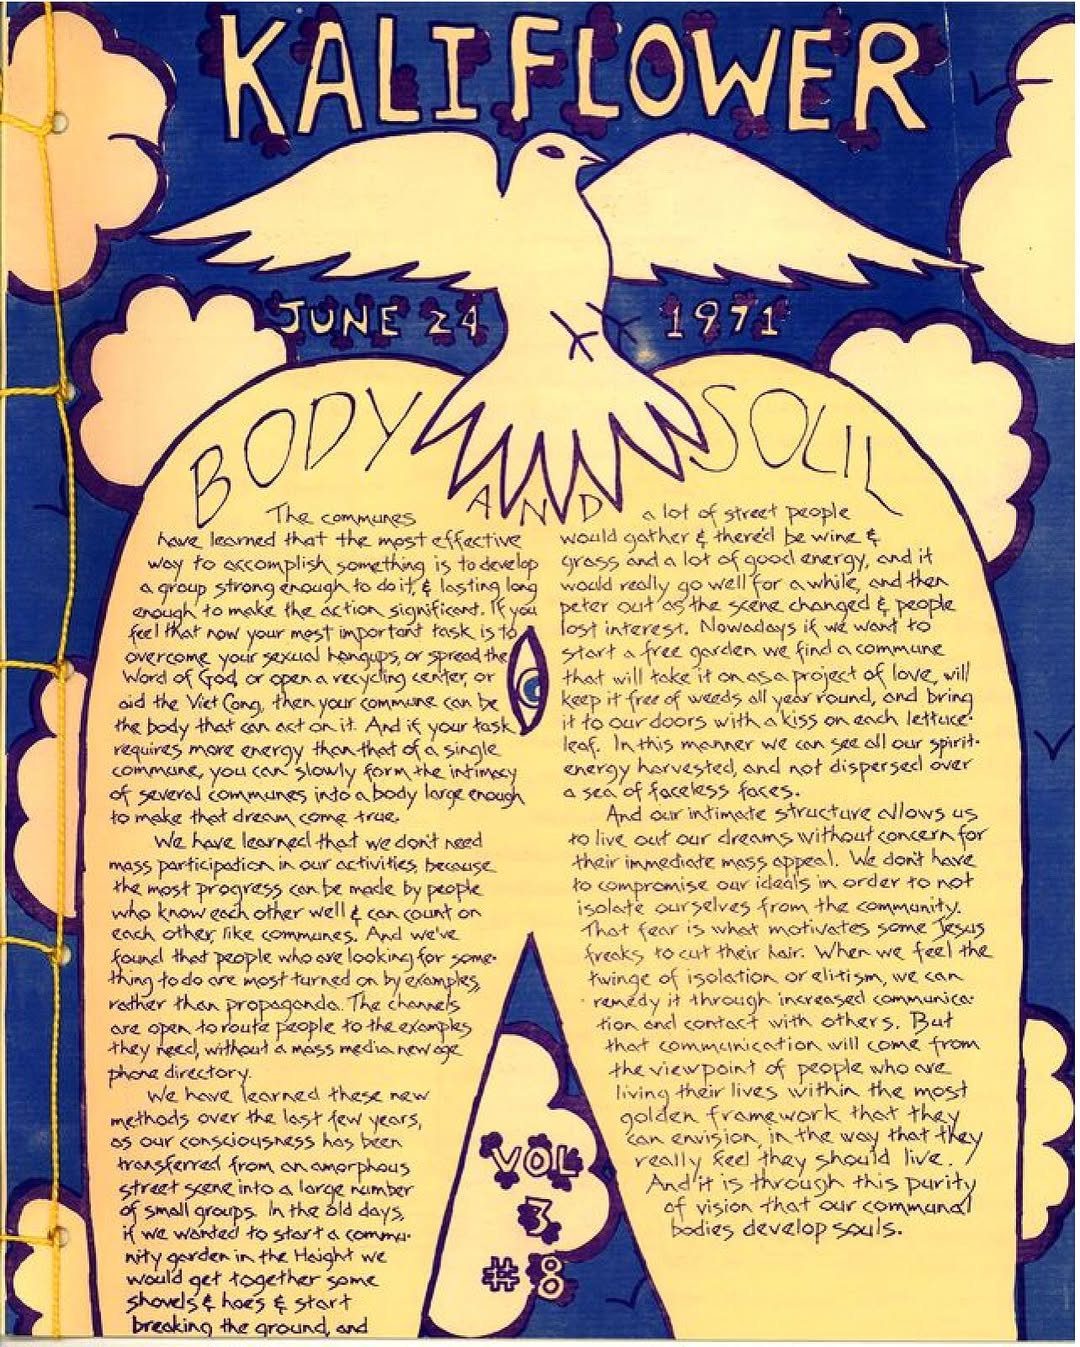 KALIFLOWER
JUNE 24 1971
BODY AND SOUL
The communes
have learned that the most effective
way to accomplish something is to develop
a group strong enough to do it, & lasting long
enough to make the action significant. If you
feel that now your most important task is to
overcome your sexual hangups, or spread the
Word of God, or open a recycling center, or
aid the Viet Cong, then your commune can be
the body that can act on it. And if your task
requires more energy than that of a single
commune, you can slowly form the intimacy
of several communes into a body large enough
to make that dream come true.
We have learned that we don't need
mass participation in our activities, because
the most progress can be made by people
who know each other well & can count on
each other, like communes. And we've
found that people who are looking for some-
thing to do are most turned on by examples,
rather than propaganda. The channels
are open to route people to the examples
they need, without a mass media new age
phone directory.
We have learned these new
methods over the last few years,
as our consciousness has been
transferred from an amorphous
street scene into a large number
of small groups. In the old days,
if we wanted to start a commu-
nity garden in the Haight we
would get together some
shovels & hoes & start
breaking the ground, and
a lot of street people
would gather & there'd be wine &
grass and a lot of good energy, and it
would really go well for a while, and then
peter out as the scene changed & people
lost interest. Nowadays if we want to
start a free garden we find a commune
that will take it on as a project of love, will
keep it free of weeds all year round, and bring
it to our doors with a kiss on each lettuce-
leaf. In this manner we can see all our spirit-
energy harvested, and not dispersed over
a sea of faceless faces.
And our intimate structure allows us
to live out our dreams without concern for
their immediate mass appeal. We don't have
to compromise our ideals in order to not
isolate ourselves from the community.
That fear is what motivates some Jesus
freaks to cut their hair. When we feel the
twinge of isolation or elitism, we can
remedy it through increased communica-
tion and contact with others. But
that communication will come from
the viewpoint of people who are
living their lives within the most
golden framework that they
can envision, in the way that they
really feel they should live.
And it is through this purity
of vision that our communal
bodies develop souls.
VOL
3
#8